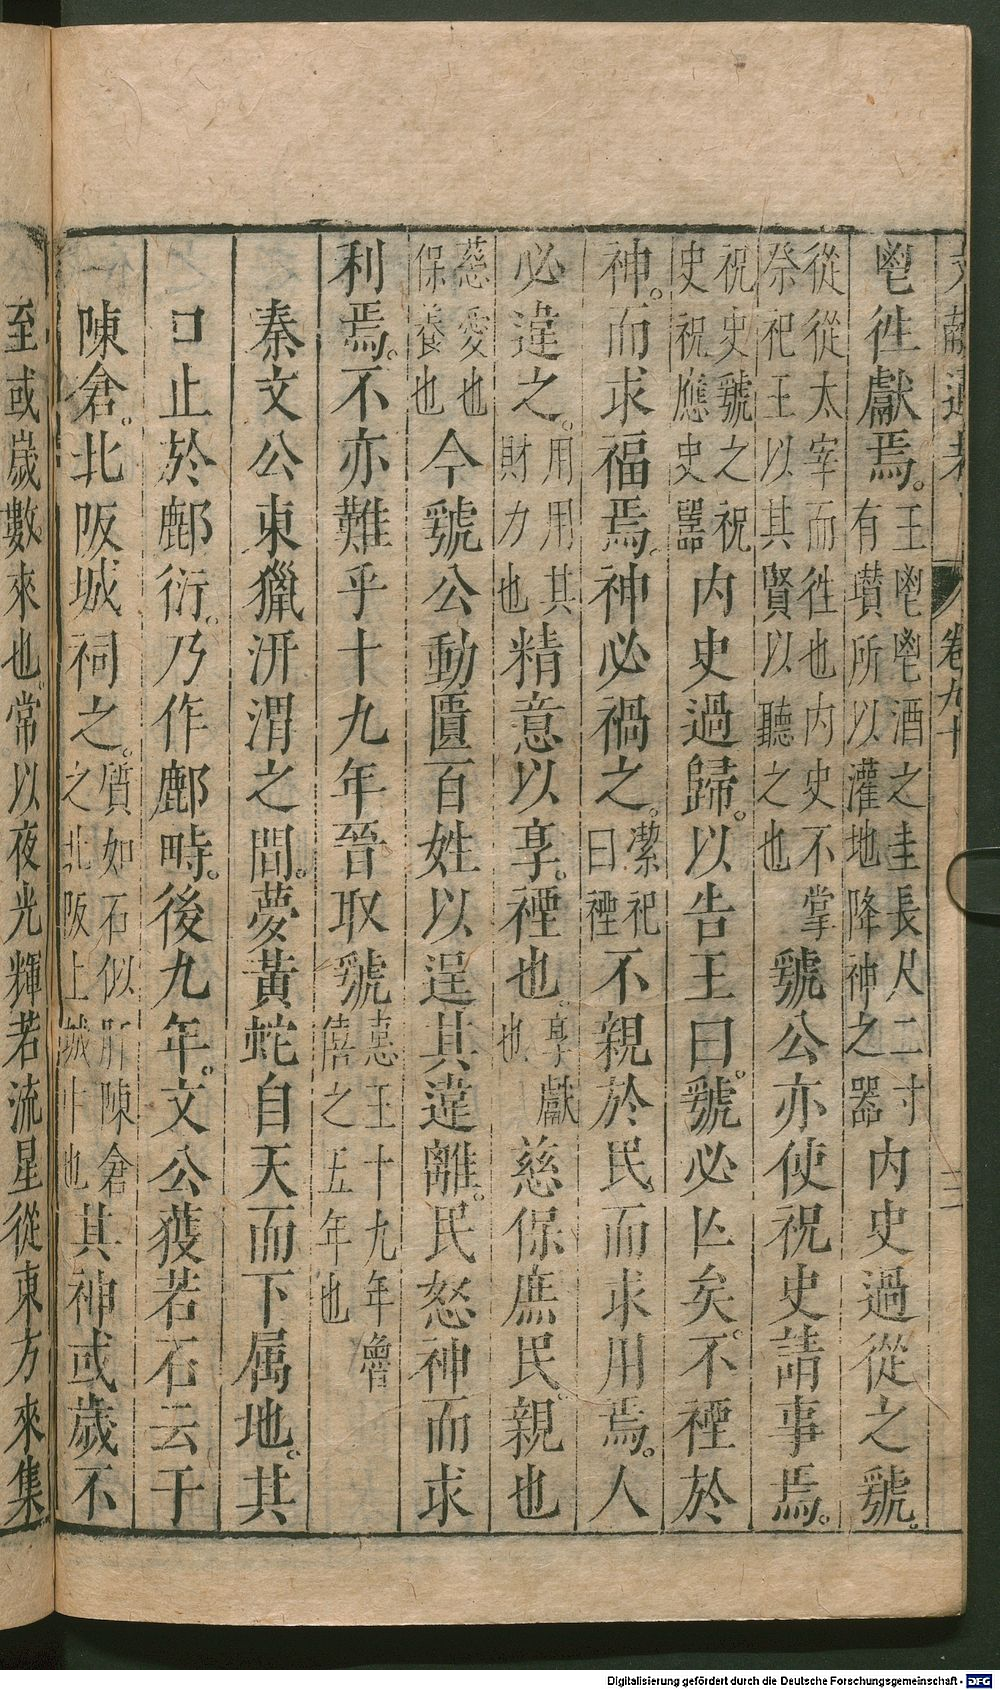 文獻通考 卷九十 三
鬯往獻焉。王鬯鬯酒之圭長尺二寸有瓚所以灌地降神之器内史過從之虢。
從從太宰而往也内史不掌祭祀王以其賢以聽之也虢公亦使祝史請事焉。
祝史虢之祝史祝應史嚚内史過歸。以告王曰。虢必亾矣。不禋於
神。而求福焉。神必禍之。潔祀曰禋不親於民而求用焉。人
必違之。用用其財力也精意以享。禋也。享獻也慈保庶民。親也
慈愛也保養也今虢公動匱百姓以逞其違離。民怒神而求
利焉。不亦難乎十九年晉取虢惠王十九年魯僖之五年也
秦文公東獵汧渭之間。夢黃蛇自天而下属地。其
口止於鄜衍。乃作鄜畤。後九年。文公獲若石云于
陳倉。北阪城祠之。質如石似肝陳倉之北阪上城中也其神或歲不
至或歲數來也。常以夜光輝若流星從東方來集
Digitalisierung gefördert durch die Deutsche Forschungsgemeinschaft - DFG